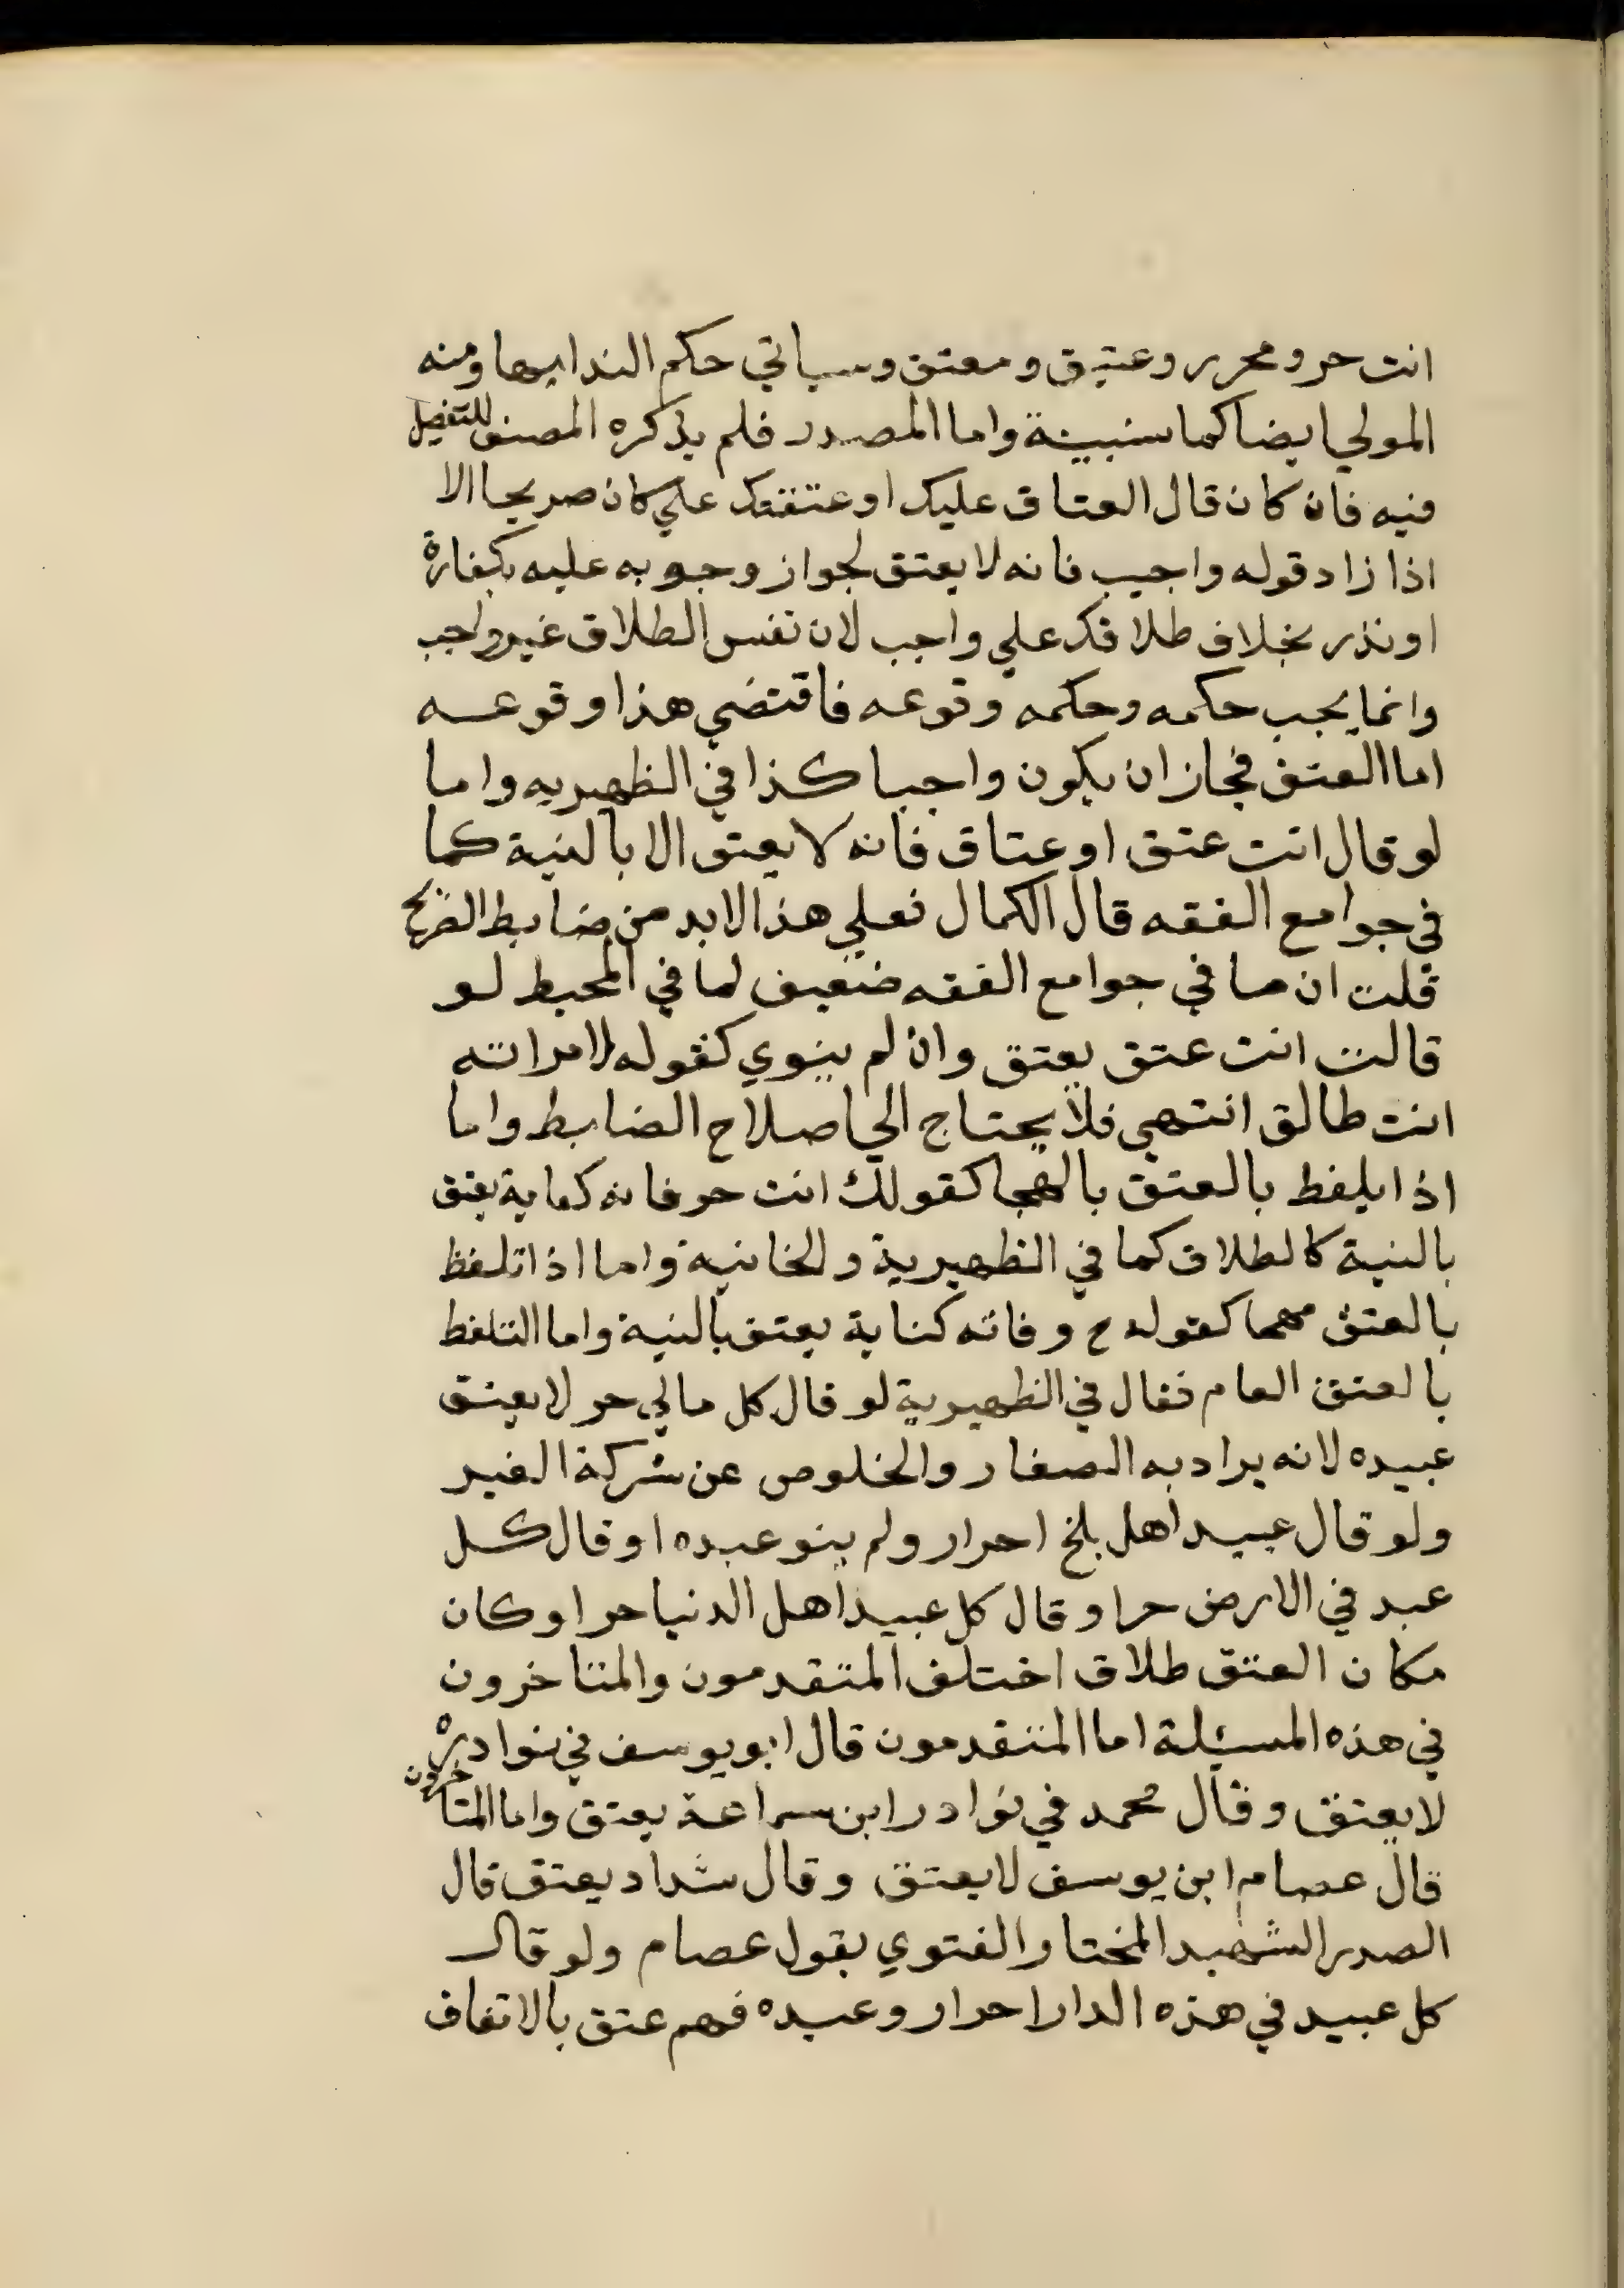 انت حر و محرر وعتيق و معتق وسياتي حكم الندا بها ومنه
المولي ايضا كما سنبينة واما المصدر فلم يذكره المصنف للتفصيل
فيه فان كان قال العتاق عليك او عتقك علي كان صريحا الا
اذا زاد قوله واجب فانه لا يعتق لجواز وجوبه عليه بكفارة
او نذر بخلاف طلاقك علي واجب لان نفس الطلاق غير واجب
وانما يجب حكمه وحكمه وقوعه فاقتضي هذا وقوعه
اما العتق فجاز ان يكون واجبا كذا في الظهيريه واما
لو قال انت عتق او عتاق فانه لا يعتق الا بالنية كما
في جوامع الفقه قال الكمال فعلي هذا لا بد من ضابط الصريح
قلت ان ما في جوامع الفقه ضعيف لما في المحيط لو
قالت انت عتق يعتق وان لم ينوي كقوله لامراته
انت طالق انتهي فلا يحتاج الي اصلاح الضابط واما
اذا يلفظ بالعتق بالهجا كقولك انت حر فانه كناية يعتق
بالنية كالطلاق كما في الظهيرية والخانية واما اذا تلفظ
بالعتق مهما كقوله ح ر فانه كناية يعتق بالنية واما التلفظ
بالعتق العام فقال في الظهيرية لو قال كل مالي حر لا يعتق
عبيده لانه يراد به الصفار والخلوص عن شركة الغير
ولو قال عبيد اهل بلخ احرار ولم ينو عبده او قال كل
عبد في الارض حر او قال كل عبيد اهل الدنيا حر او كان
مكان العتق طلاق اختلف المتقدمون والمتاخرون
في هذه المسيلة اما المتقدمون قال ابو يوسف في نوادره
لا يعتق وقال محمد في نوادر ابن سماعة يعتق واما المتاخرون
قال عصام ابن يوسف لا يعتق وقال شداد يعتق قال
الصدر الشهيد المختار والفتوي بقول عصام ولو قال
كل عبيد في هذه الدار احرار وعبده فهم عتق بالاتفاق